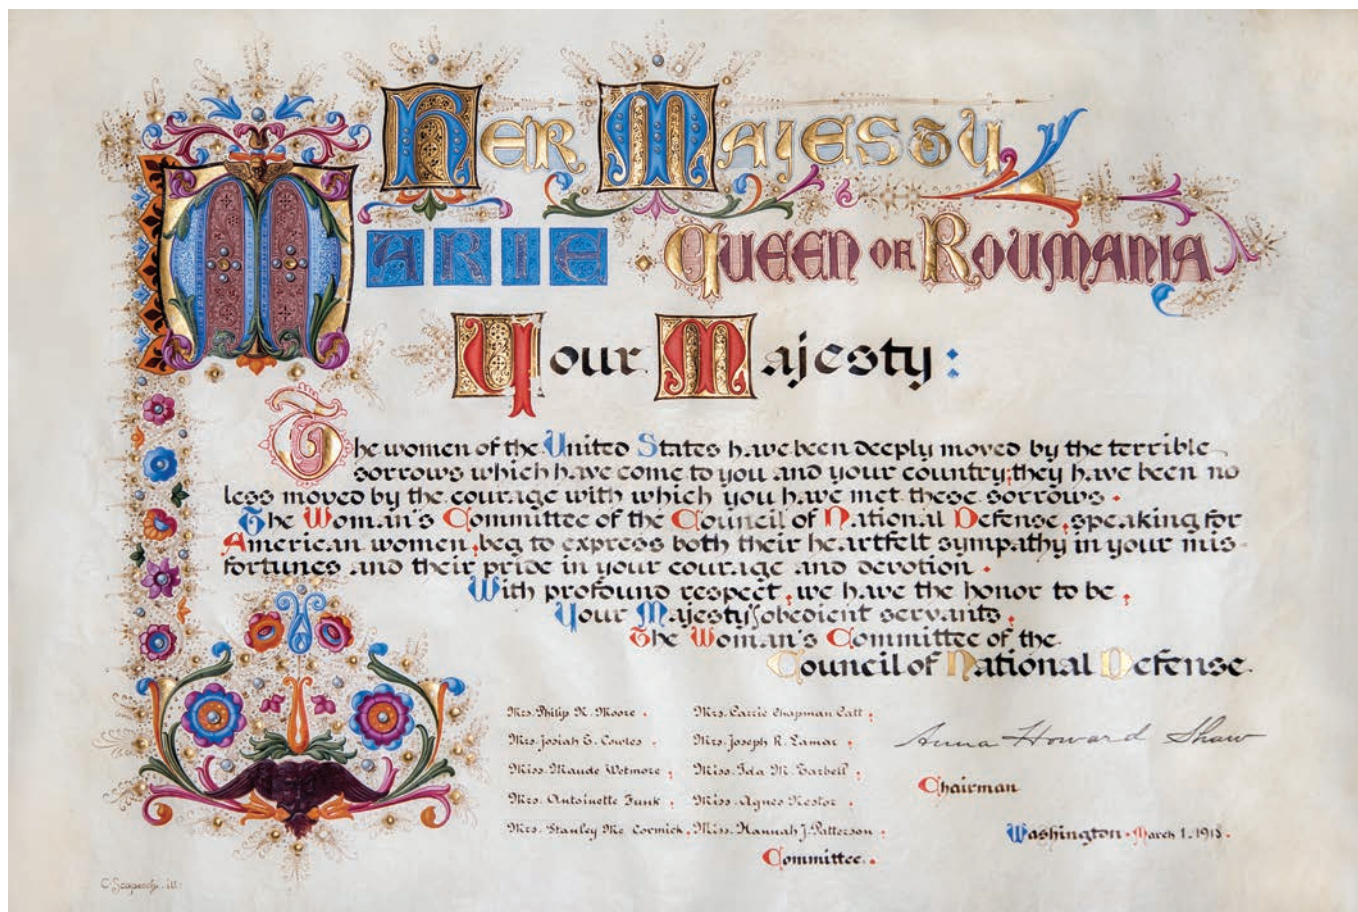 Her Majesty
Marie Queen of Roumania
Your Majesty:
The women of the United States have been deeply moved by the terrible
sorrows which have come to you and your country; they have been no
less moved by the courage with which you have met these sorrows.
The Woman's Committee of the Council of National Defense, speaking for
American women, beg to express both their heartfelt sympathy in your mis-
fortunes and their pride in your courage and devotion.
With profound respect, we have the honor to be,
Your Majesty's obedient servants,
The Woman's Committee of the
Council of National Defense.
Mrs. Philip N. Moore.
Mrs. Josiah E. Cowles.
Miss. Maude Wetmore,
Mrs. Antoinette Funk,
Mrs. Stanley Mc. Cormick,
Mrs. Carrie Chapman Catt,
Mrs. Joseph R. Lamar,
Miss. Ida M. Tarbell,
Miss. Agnes Nestor,
Miss. Hannah J. Patterson,
Committee.
Anna Howard Shaw
Chairman
Washington. March 1. 1918.